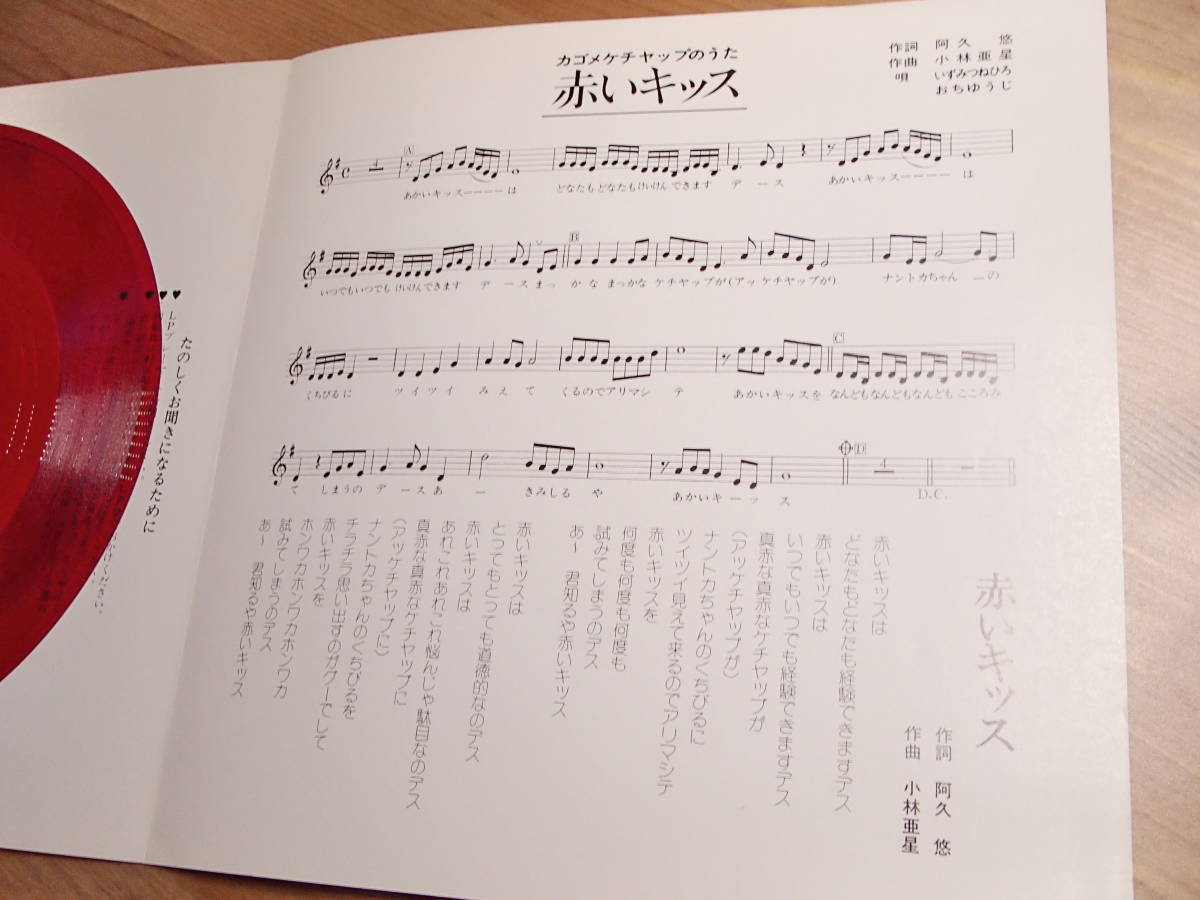 カゴメケチヤップのうた
赤いキッス
作詞 阿久 悠
作曲 小林亜星
唄 いずみつねひろ
おちゆうじ
A
あかいキッス━━━━は どなたもどなたもけいけんできます デース あかいキッス━━━━は
B
いつでもいつでもけいけんできます デースまっ かな まっかな ケチヤップが(アッ ケチヤップが) ナントカちゃん ーの
C
くちびるに ツイツイ みえて くるのでアリマシ テ あかいキッスを なんどもなんどもなんども こころみ
D
て しまうの デースあ ー きみしる や あかいキーッ ス
D.C.
赤いキッス
作詞 阿久 悠
作曲 小林亜星
赤いキッスは
どなたもどなたも経験できますデス
赤いキッスは
いつでもいつでも経験できますデス
真赤な真赤なケチヤップが
(アッケチヤップが)
ナントカちゃんのくちびるに
ツイツイ見えて来るのでアリマシテ
赤いキッスを
何度も何度も何度も
試みてしまうのデス
あ〜 君知るや赤いキッス
赤いキッスは
とってもとっても道徳的なのデス
赤いキッスは
あれこれあれこれ悩んじゃ駄目なのデス
真赤な真赤なケチヤップに
(アッケチヤップに)
ナントカちゃんのくちびるを
チラチラ思い出すのがグーでして
赤いキッスを
ホンワカホンワカホンワカ
試みてしまうのデス
あ〜 君知るや赤いキッス
たのしくお聞きになるために
♥LPプ
♥
♥
♥
ください。